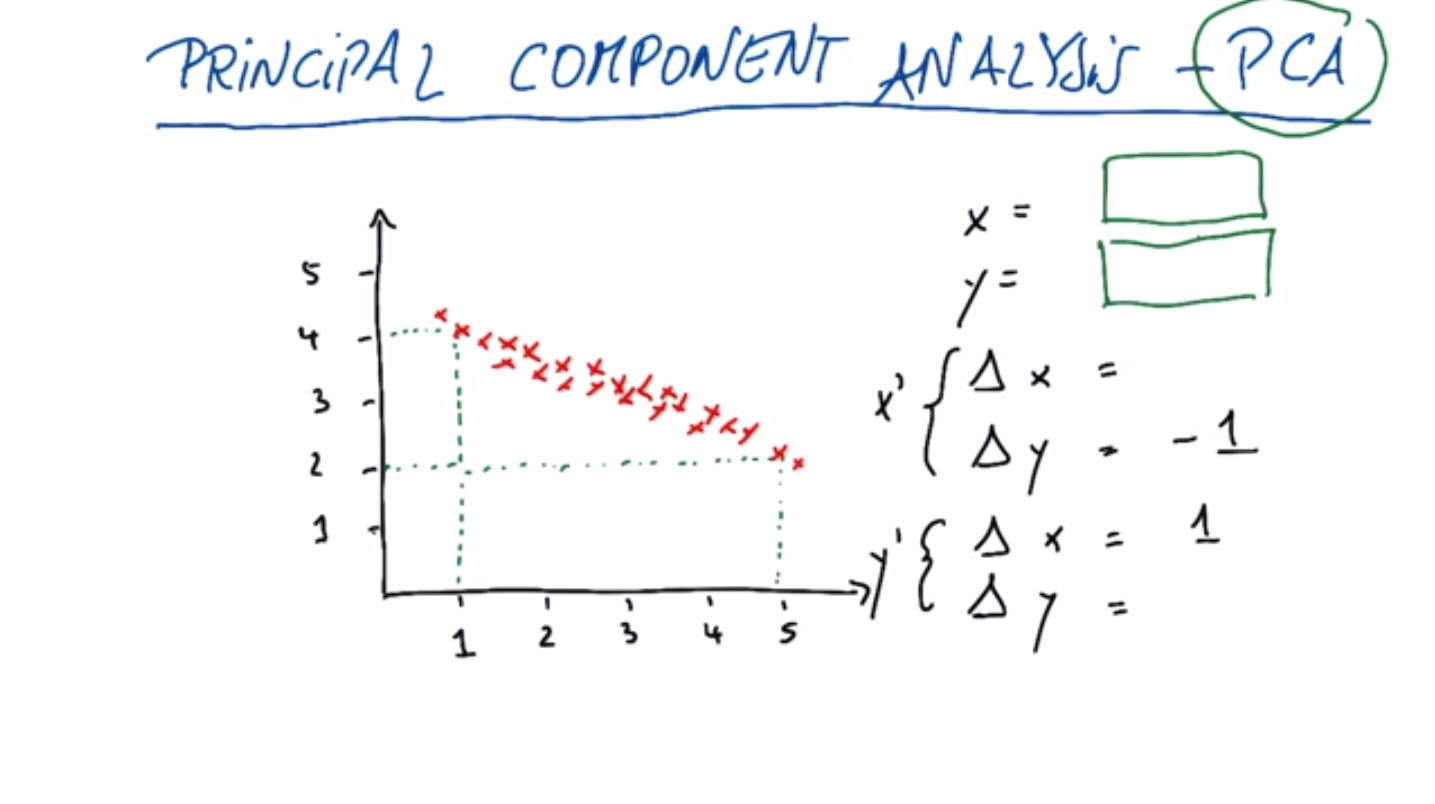 PRINCIPAL COMPONENT ANALYSIS - PCA
x =
y =
5
4
3
2
1
1 2 3 4 5
x' { Δ x =
Δ y = -1
y' { Δ x = 1
Δ y =